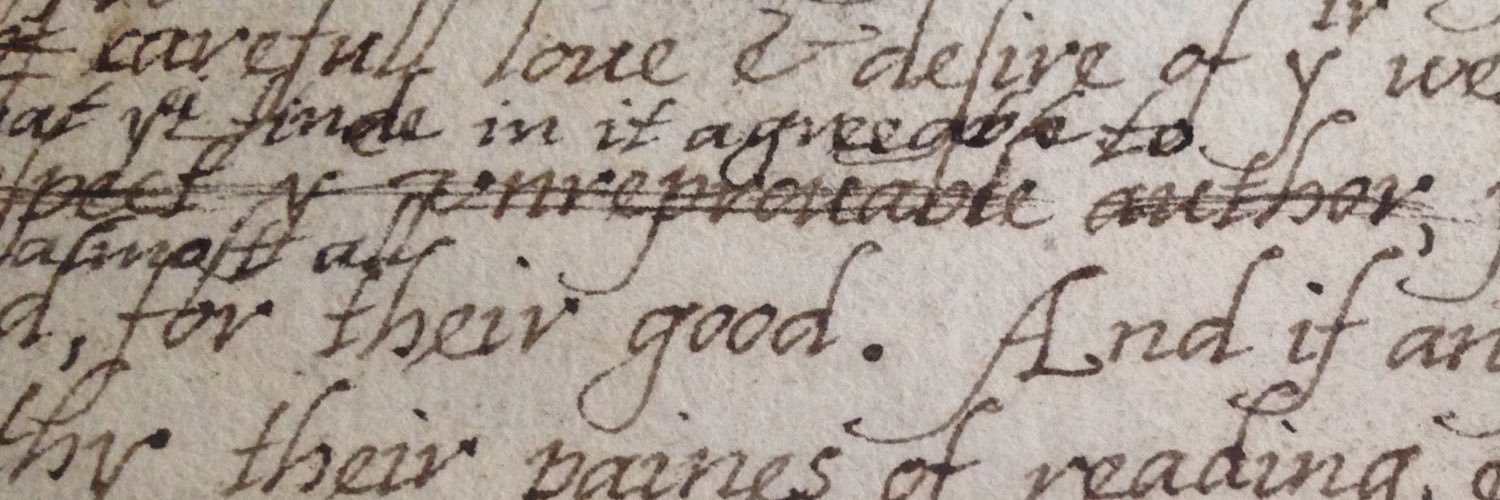 carefull loue & desire of yͤ we
at yᵗ finde in it agreeable to
spect yͤ vnreprouable author,
almost all
d, for their good. And if an
thy their paines of reading,